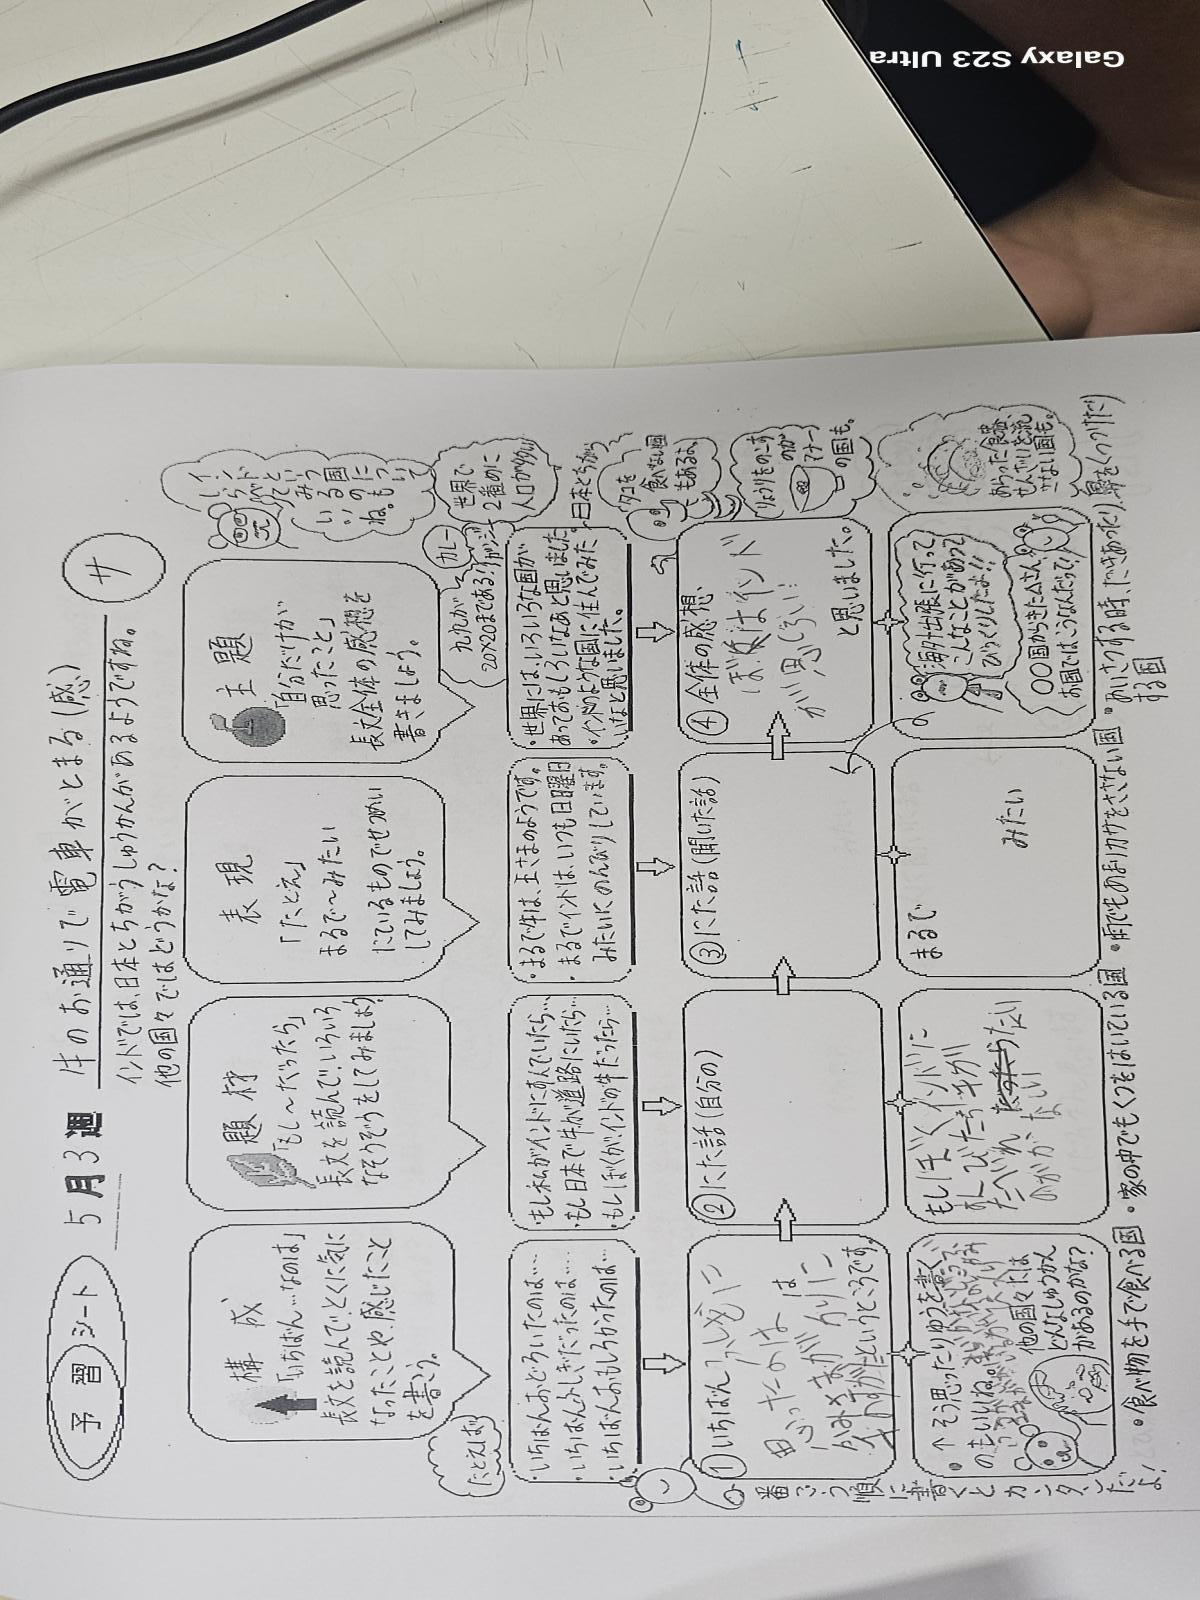 予習シート
5月3週
牛のお通りで電車がとまる（感）
サ
インドでは、日本とちがうしゅうかんがあるようですね。
他の国々ではどうかな？
構成
「いちばん…なのは」
長文を読んで、とくに気に
なったことや、感じたこと
を書こう。
題材
「もし～だったら」
長文を読んで、いろいろ
なそうぞうをしてみましょう
表現
「たとえ」
まるで～みたい
にているものでせつめい
してみましょう。
主題
「自分だけが
思ったこと」
長文全体の感想を
書きましょう。
インドという国に
ついて
世界で
2番めに
人口が多い
カレー
九九が
20×20まである!
たとえば
・いちばんおどろいたのは……
・いちばんふしぎだったのは……
・いちばんおもしろかったのは…
・もし私がインドにすんでいたら…
・もし日本で牛が道路にいたら…
・もしぼくが、インドの牛だったら…
・まるで牛は、王さまのようです。
・まるでインドは、いつも日曜日
みたいにのんびりしています。
・世界には、いろいろな国が
あっておもしろいなあと思いました。
・インドのような国に住んでみた
いなと思いました。
日本とちがう
タコを
食べない国
もあるよ。
りょうりをのこす
のが
マナー
の国も。
①いちばん
ふしぎに
思ったのは
②にた話（自分の）
③にた話（聞いた話）
④全体の感想
ぼくはインド
が
と思いました。
というところです。
・↑そう思ったりゆうを書く
のもいいね。
他の国々では
どんなしゅうかん
があるのかな？
もしぼくがインドに
まるで
みたい
海外出張に行って
こんなことがあって
びっくりしたよ!!
〇〇国からきた△さん
お国ではこうなんだって!
あらった食器、
せんざいを流
さない国も。
一番ごう順に書くとカンタンだよ!
・食べ物を手で食べる国
・家の中でもくつをはいている国
・雨でもあまりカサをささない国
・あいさつする時、だきあったり、鼻をくっつけたり
する国
Galaxy S23 Ultra